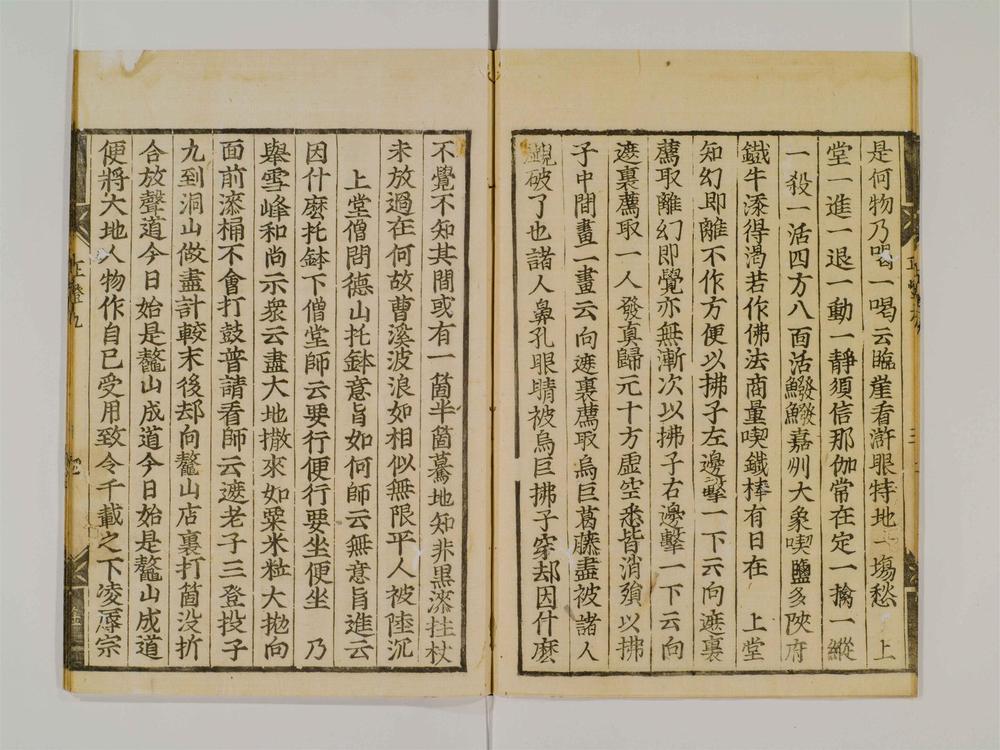 是何物乃喝一喝云臨崖看滸眼特地一塲愁　上
堂一進一退一動一靜須信那伽常在定一擒一縱
一殺一活四方八面活鱍鱍嘉州大象喫鹽多陜府
鐵牛添得渴若作佛法商量喫鐵棒有日在　上堂
知幻即離不作方便以拂子左邊擊一下云向遮裏
薦取離幻即覺亦無漸次以拂子右邊擊一下云向
遮裏薦取一人發真歸元十方虛空悉皆消殞以拂
子中間畫一畫云向遮裏薦取烏巨葛藤盡被諸人
覷破了也諸人鼻孔眼睛被烏巨拂子穿却因什麽
不覺不知其間或有一箇半箇驀地知非黑漆拄杖
未放過在何故曹溪波浪如相似無限平人被陸沉
上堂僧問德山托鉢意旨如何師云無意旨進云
因什麽托鉢下僧堂師云要行便行要坐便坐　乃
舉雪峰和尚示衆云盡大地撒來如粟米粒大抛向
面前漆桶不會打鼓普請看師云遮老子三登投子
九到洞山做盡計較末後却向鼇山店裏打箇没折
合放聲道今日始是鼇山成道今日始是鼇山成道
便將大地人物作自己受用致令千載之下凌辱宗